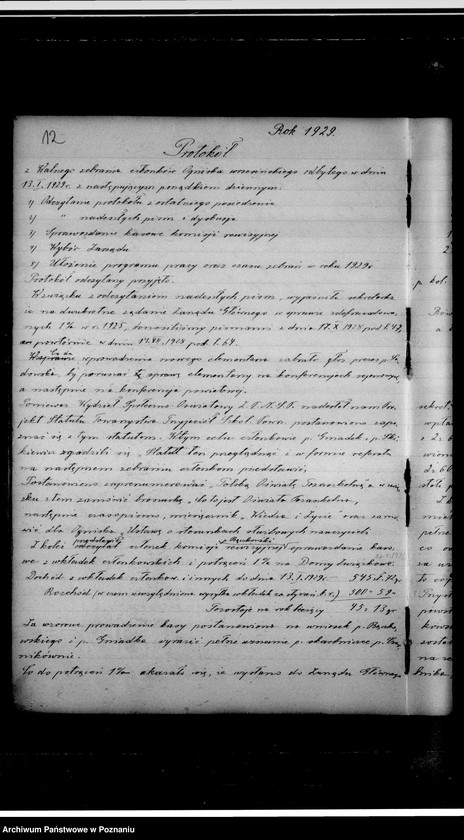 12
Rok 1929.
Protokół
z Walnego zebrania członków Ogniska wrzesińskiego odbytego w dniu
13.I.1929 r. z następującym porządkiem dziennym:
1) Odczytanie protokołu z ostatniego posiedzenia
2) " nadesłanych pism i dyskusja
3) Sprawozdanie kasowe komisji rewizyjnej
4) Wybór Zarządu
5) Ułożenie programu pracy oraz czasu zebrań w roku 1929 r.
Protokół odczytany przyjęto.
W związku z odczytaniem nadesłanych pism, wyjaśnił sekretarz
że na dwukrotne żądanie Zarządu Głównego w sprawie
nych 1% w r. 1925, donosiliśmy pismami z dnia 17.X.1928 pod l. 47,
oraz powtórnie w dniu 1928 pod l. 64.
wprowadzenia nowego elementarza zabrał głos prezes p.
by poruszać tę sprawę elementarzy na konferencjach rejonowych
a następnie na konferencji powiatowej.
Ponieważ Wydział Społeczno Oświatowy Z.P.N.S.P. nadesłał nam
jekt Statutu Towarzystwa Przyjaciół Szkoł. Pow. postanowiono zapo
znać się z tym statutem. W tym celu członkowie p. Gniadek, p.
zgodzili się, Statut ten przeglądnąć i w formie referatu
na następnem zebraniu członkom przedstawić.
Postanowiono zaprenumerować „Polską Oświatę Pozaszkolną" a w
zku z tem zamówić broszurkę „Co to jest Oświata Pozaszkolna",
następnie czasopismo, miesięcznik „Wiedza i Życie" oraz zamó
wić dla Ogniska „Ustawę o stosunkach służbowych nauczycieli
Z kolei członek komisji rewizyjnej sprawozdanie kaso
we z wkładek członkowskich i potrąceń 1% na Domy Związkowe.
Dochód z wkładek członkow. i innych do dnia 13.I.1929 r. 545 zł.
Rozchód (w czem uwzględniono wysyłkę wkładek za styczeń b.r.) 500 -
Pozostaje na rok bieżący 45. 15 gr.
Za wzorowe prowadzenie kasy postanowiono na wniosek p.
wskiego i p. Gniadka wyrazić pełne uznanie p. skarbniczce p.
nikównie.
Co do potrąceń 1% okazało się, że wysłano do Zarządu Głównego
p. kol.
Archiwum Państwowe w Poznaniu